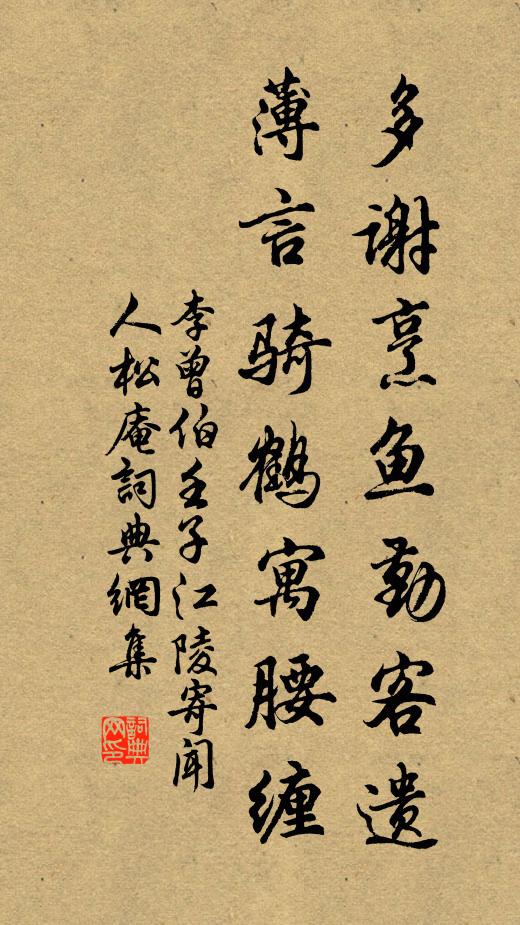 多谢烹鱼勤客遗
薄言骑鹤寓腰缠
李曾伯壬子江陵寄闻
人松庵詞典網集
詞典
网印